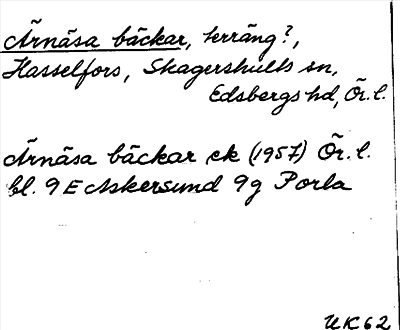 Ärnäsa bäckar, terräng?,
Hasselfors, Skagershults sn,
Edsbergs hd, Ör. l.
Ärnäsa bäckar ek (1957) Ör. l.
bl. 9 E Askersund 9g Porla
UK62